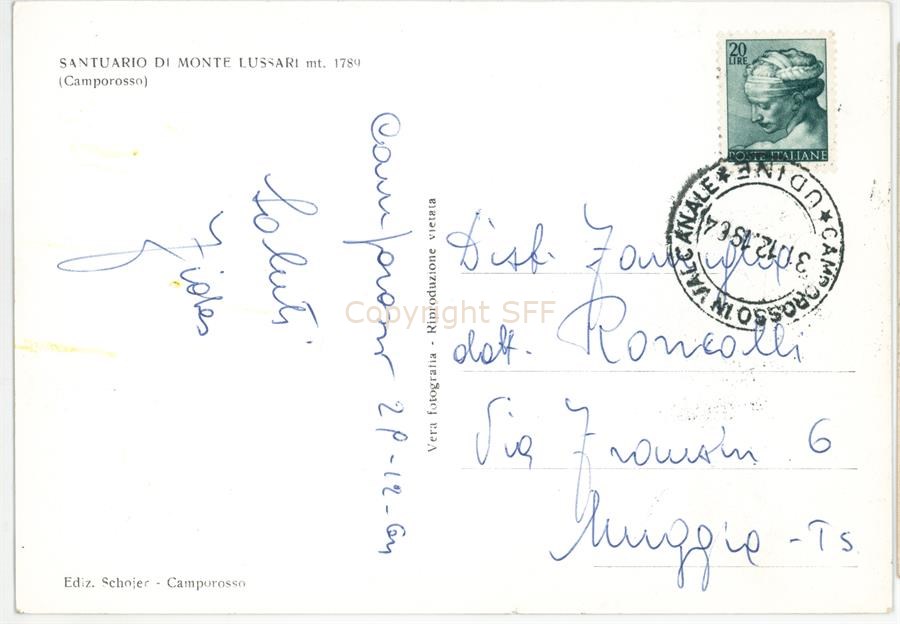 SANTUARIO DI MONTE LUSSARI mt. 1789
(Camporosso)
20
LIRE
POSTE ITALIANE
CAMPOROSSO IN VALCANALE ★ UDINE ★
31.12.1964
Camporosso
Saluti
Vera fotografia - Riproduzione vietata
Dist. Famiglia
dott. Roncalli
Via 6
Muggia - Ts
Copyright SFF
Ediz. Schojer - Camporosso